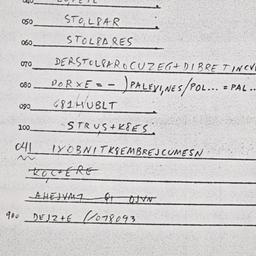 050 STOLPAR
060 STOLPARES
070 DERSTOLPAROCUZEG+DIBRETINCV
080 PORXE=-) PALEVI,NES/POL... =PAL..
090 G81HUBLT
100 STRUS+K8ES
041 IYOBNITK8EMBREJCUMESN
KOC+ERE
AHEJVM7 81 OJVN
900 DEJZ+E 1/078093